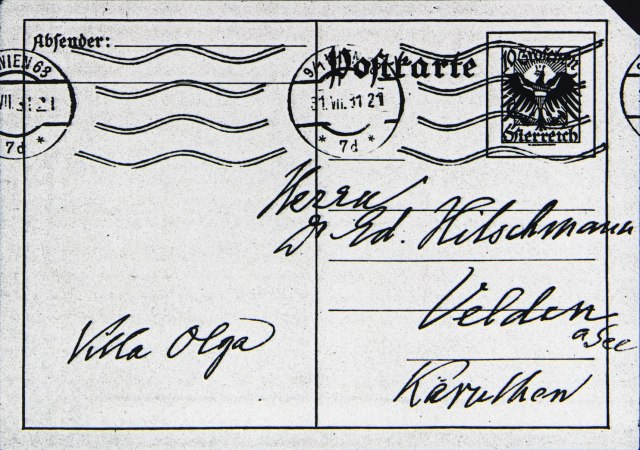 Absender:
Postkarte
WIEN 68
VII. 31. 21
7d
31. VII. 31. 21
* 7d *
10 Groschen
Österreich
Herrn
Dr Ed. Hitschmann
Velden
a See
Kärnthen
Villa Olga